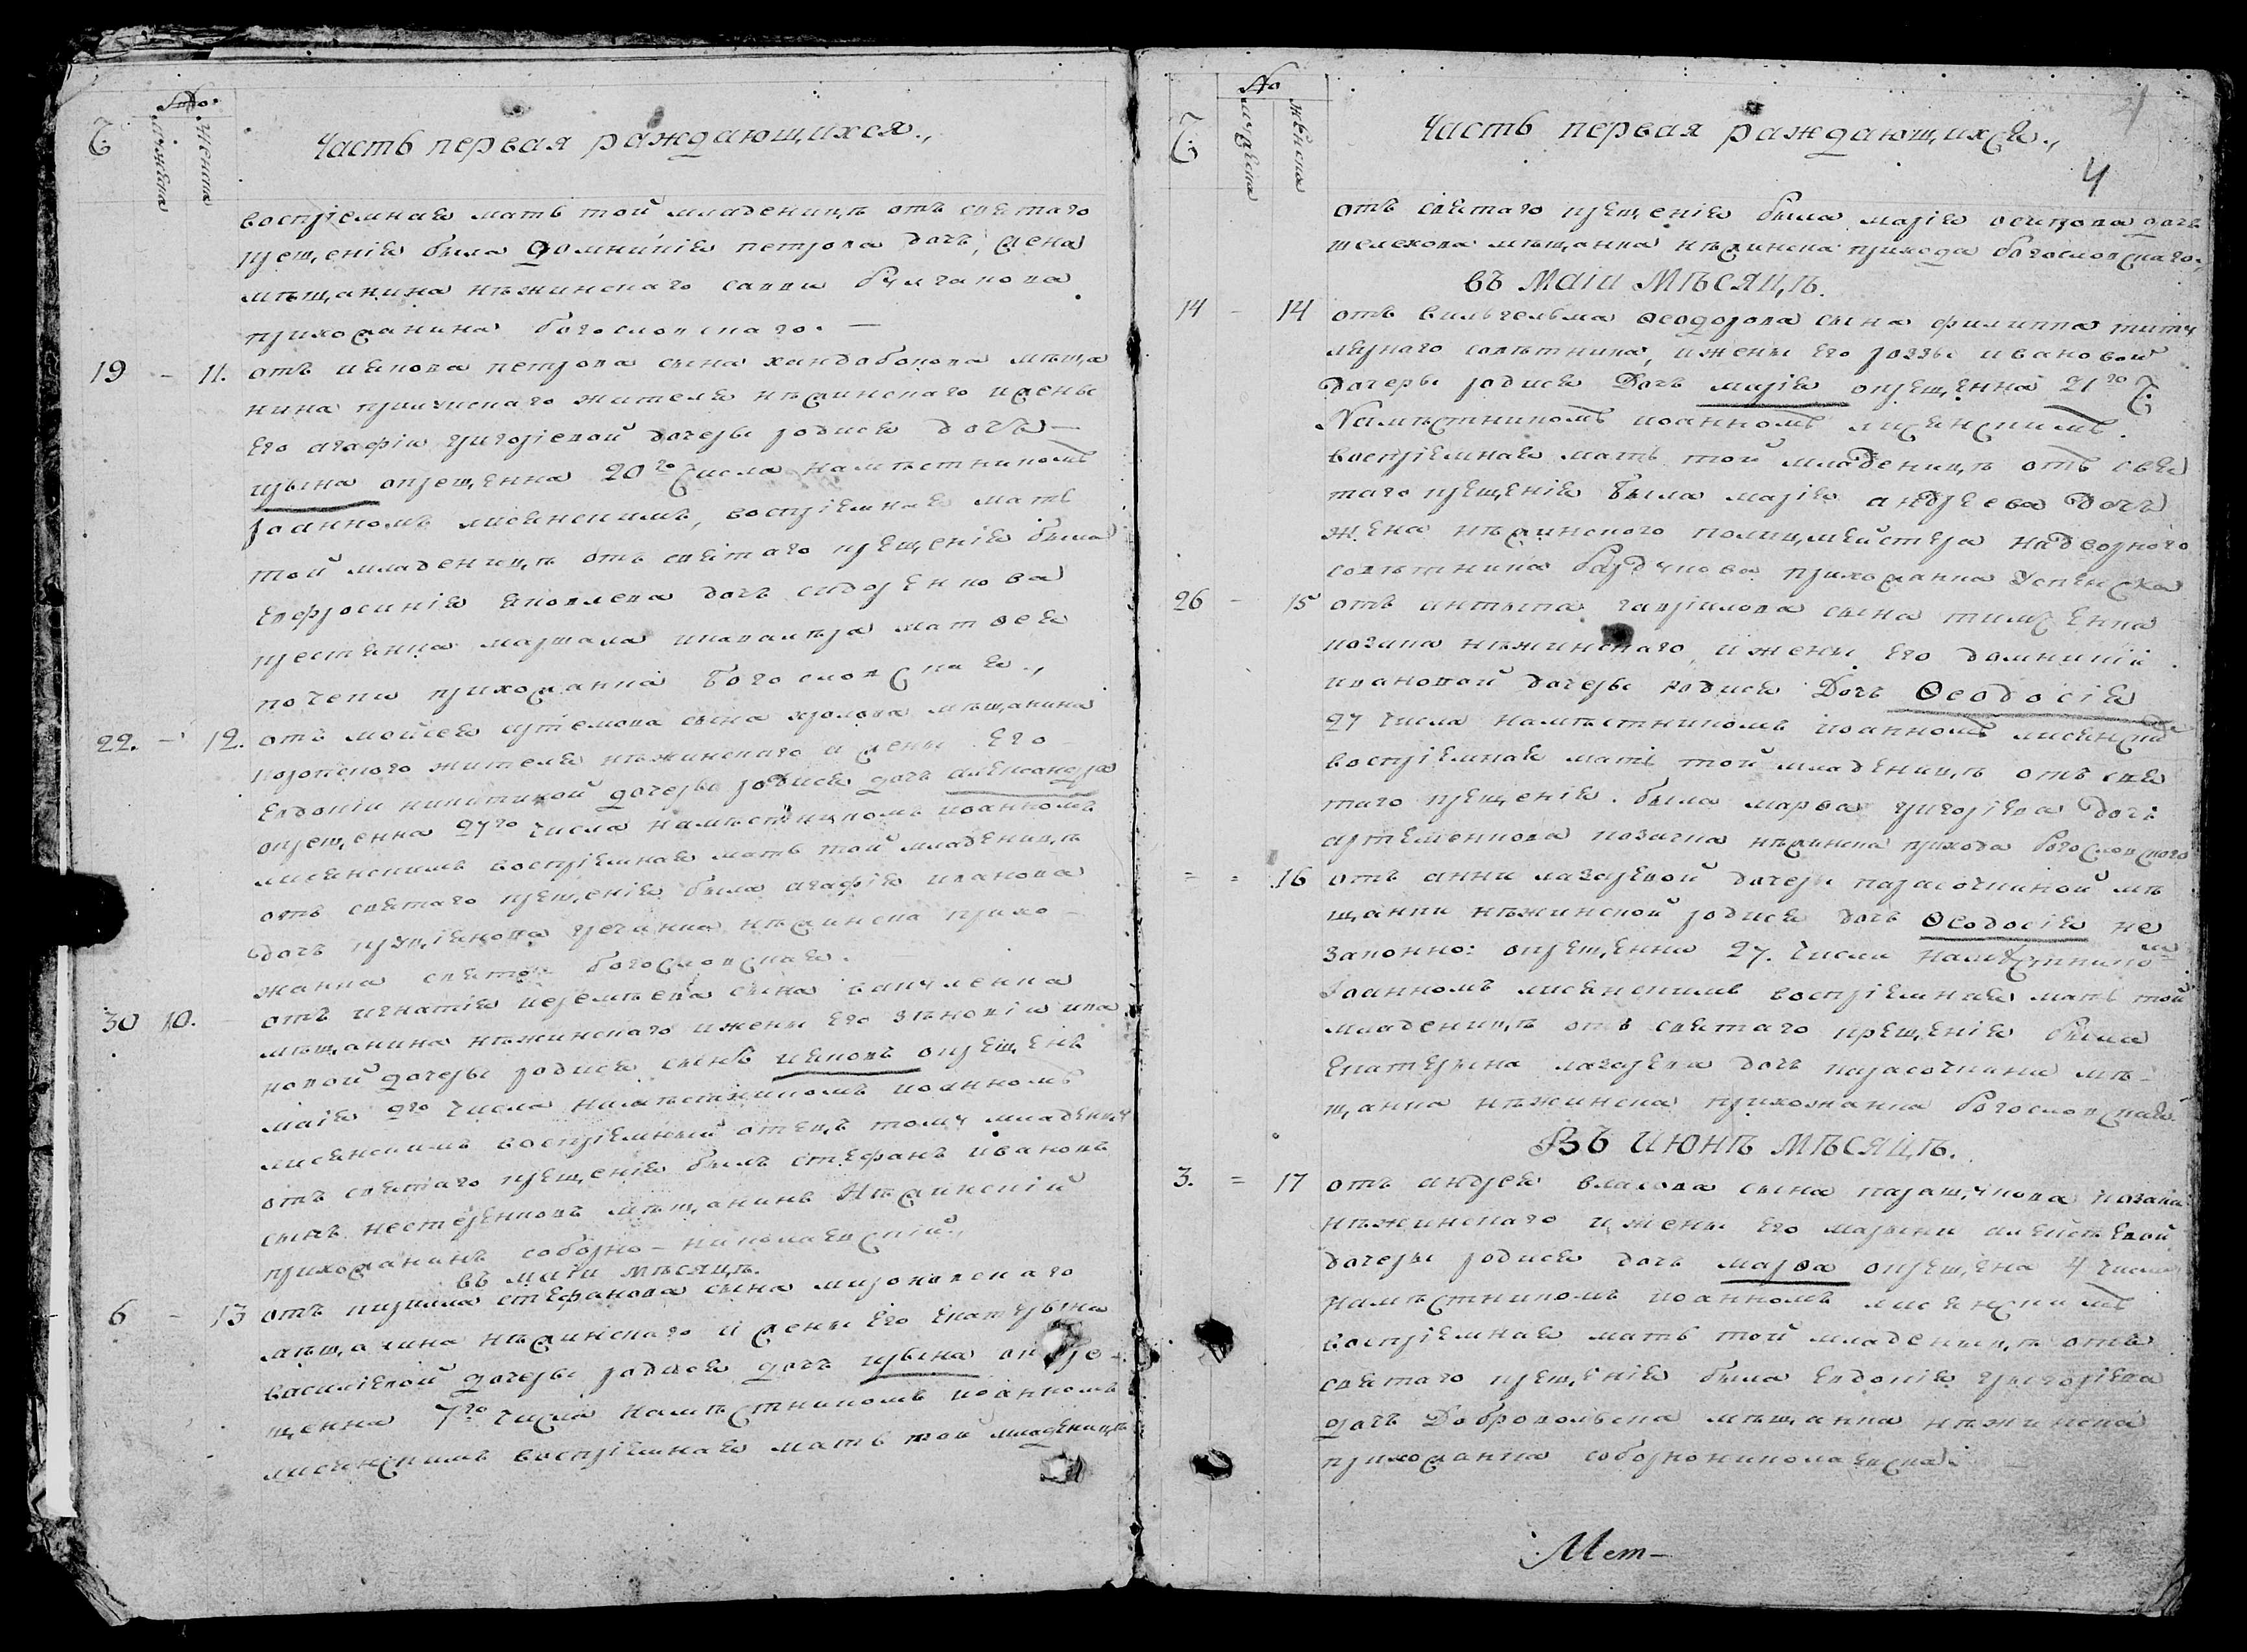 №
Ч. мужеска женска Часть первая раждающихся.,
воспрiемная мать той младеницѣ отъ святаго
крещенiя была домникiя петрова дочь, жена
мѣщанина нѣжинскаго саввы
прихожанина богословскаго. —
19 - 11. отъ iякова петрова сына мѣща
нина жителя нѣжинского и жены
его агафiи григорiевой дочеры родися дочь —
ирына окрещенна 20го числа намѣстникомъ
Iоанномъ лисѣнскимъ, воспрiемная мать
той младеницѣ отъ святаго крещенiя была
евфросинiя яковлева дочь сидоренкова
крестянка маршала и кавалѣра матѳея
почеки прихожанка богословская.,
22. - 12. отъ мойсея артемова сына мѣщанина
жителя нѣжинскаго и жены его
евдокiи никитиной дочеры родися дочь александра
окрещенна 27го числа намѣстникомъ iоанномъ
лисѣнскимъ воспрiемная мать той младеницѣ
отъ святаго крещенiя была агафiя иванова
дочь гречанка нѣжинска прихо-
жанка святой богословская.
30 10. отъ игнатiя iеремѣева сына вакуленка
мѣщанина нѣжинскаго и жены его зѣновiи ива
новой дочеры родися сынъ iяковъ окрещенъ
маiя 2го числа намѣстникомъ iоанномъ
лисѣнскимъ воспрiемный отецъ тому младенцу
отъ святаго крещенiя былъ стефанъ ивановъ
сынъ нестеренковъ мѣщанинъ нѣжинскiй
прихожанинъ соборно-николаевскiй.,
въ маiи мѣсяцѣ.
6 - 13 отъ кирилла стефанова сына мироновскаго
мѣщанина нѣжинскаго и жены его екатерыны
василiевой дочеры родися дочь ирына окре-
щенна 7го числа намѣстникомъ iоанномъ
лисѣнскимъ воспрiемная мать той младеницѣ
№
Ч. мужеска женска Часть первая раждающихся.,
4
отъ святаго крещенiя была марiя осипова дочь
шелехова мѣщанка нѣжинска прихода богословскаго.,
въ маiи мѣсяцѣ.
14 - 14 отъ вильгельма ѳеодорова сына филиппа титу
лярного совѣтника, и жены его роззы ивановой
дочеры родися дочь марiя окрещенна 21го ч.
Намѣстникомъ iоанномъ лисѣнскимъ.
воспрiемная мать той младеницѣ отъ свя
таго крещенiя была марiя андреева дочь
жена нѣжинского полицмейстера надворного
совѣтника бардукова прихожанка успенска
26 - 15 отъ антыпа гаврiилова сына тимченка
козака нѣжинскаго, и жены его домникiи
ивановой дочеры родися дочь Ѳеодосiя
27 числа намѣстникомъ iоанномъ лисѣнским
воспрiемная мать той младеницѣ отъ свя
таго крещенiя. была марѳа григорiева дочь
артеменкова козачка нѣжинска прихода богословского
= = 16 отъ анны лазаревой дочеры парасочкиной мѣ
щанки нѣжинской родися дочь Ѳеодосiя не
законно: окрещенна 27. числа намѣстникомъ
Iоанномъ лисѣнскимъ воспрiемная мать той
младеницѣ отъ святаго крещенiя была
екатерына лазарева дочь парасочкина мѣ-
щанка нѣжинска прихожанка богословская.
Въ июнѣ мѣсяцѣ.
3. = 17 отъ андрея власова сына паращукова козака
нѣжинскаго и жены его марыны алейсѣевой
дочеры родися дочь марѳа окрещена 4 числа
намѣстникомъ iоанномъ лисѣнскимъ
воспрiемная мать той младеницѣ отъ
святаго крещенiя была евдокiя григорiева
дочь Добровольска мѣщанка нѣжинска
прихожанка соборнониколаевска.
Мет-